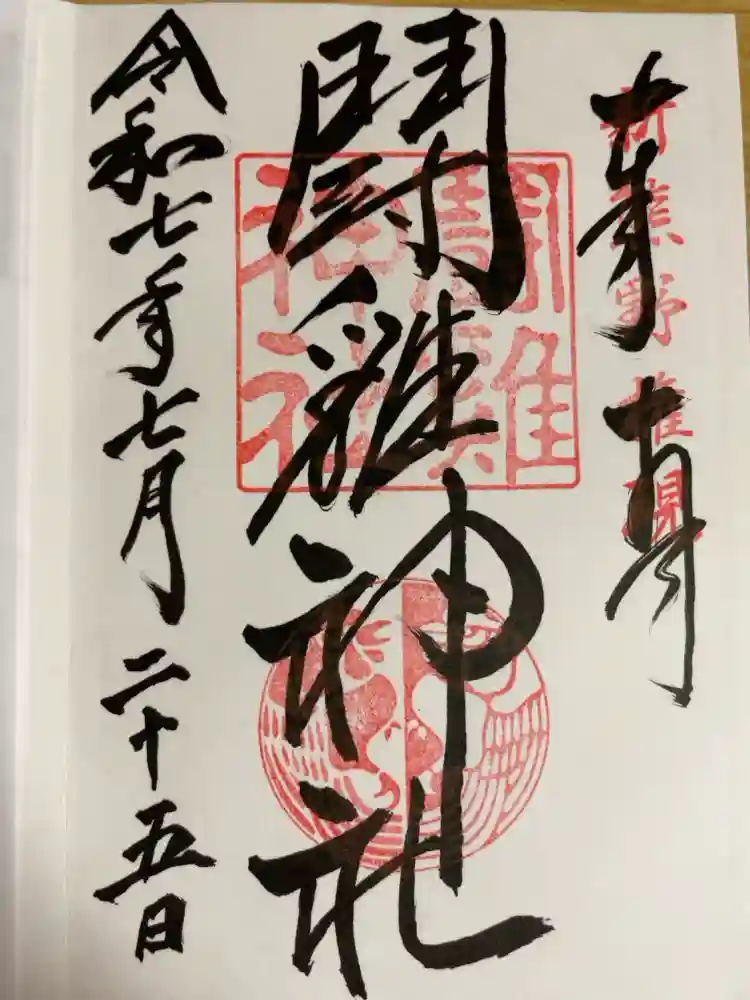 奉拝
新熊野權現
鬪雞神社
鬪雞神社
令和七年七月二十五日